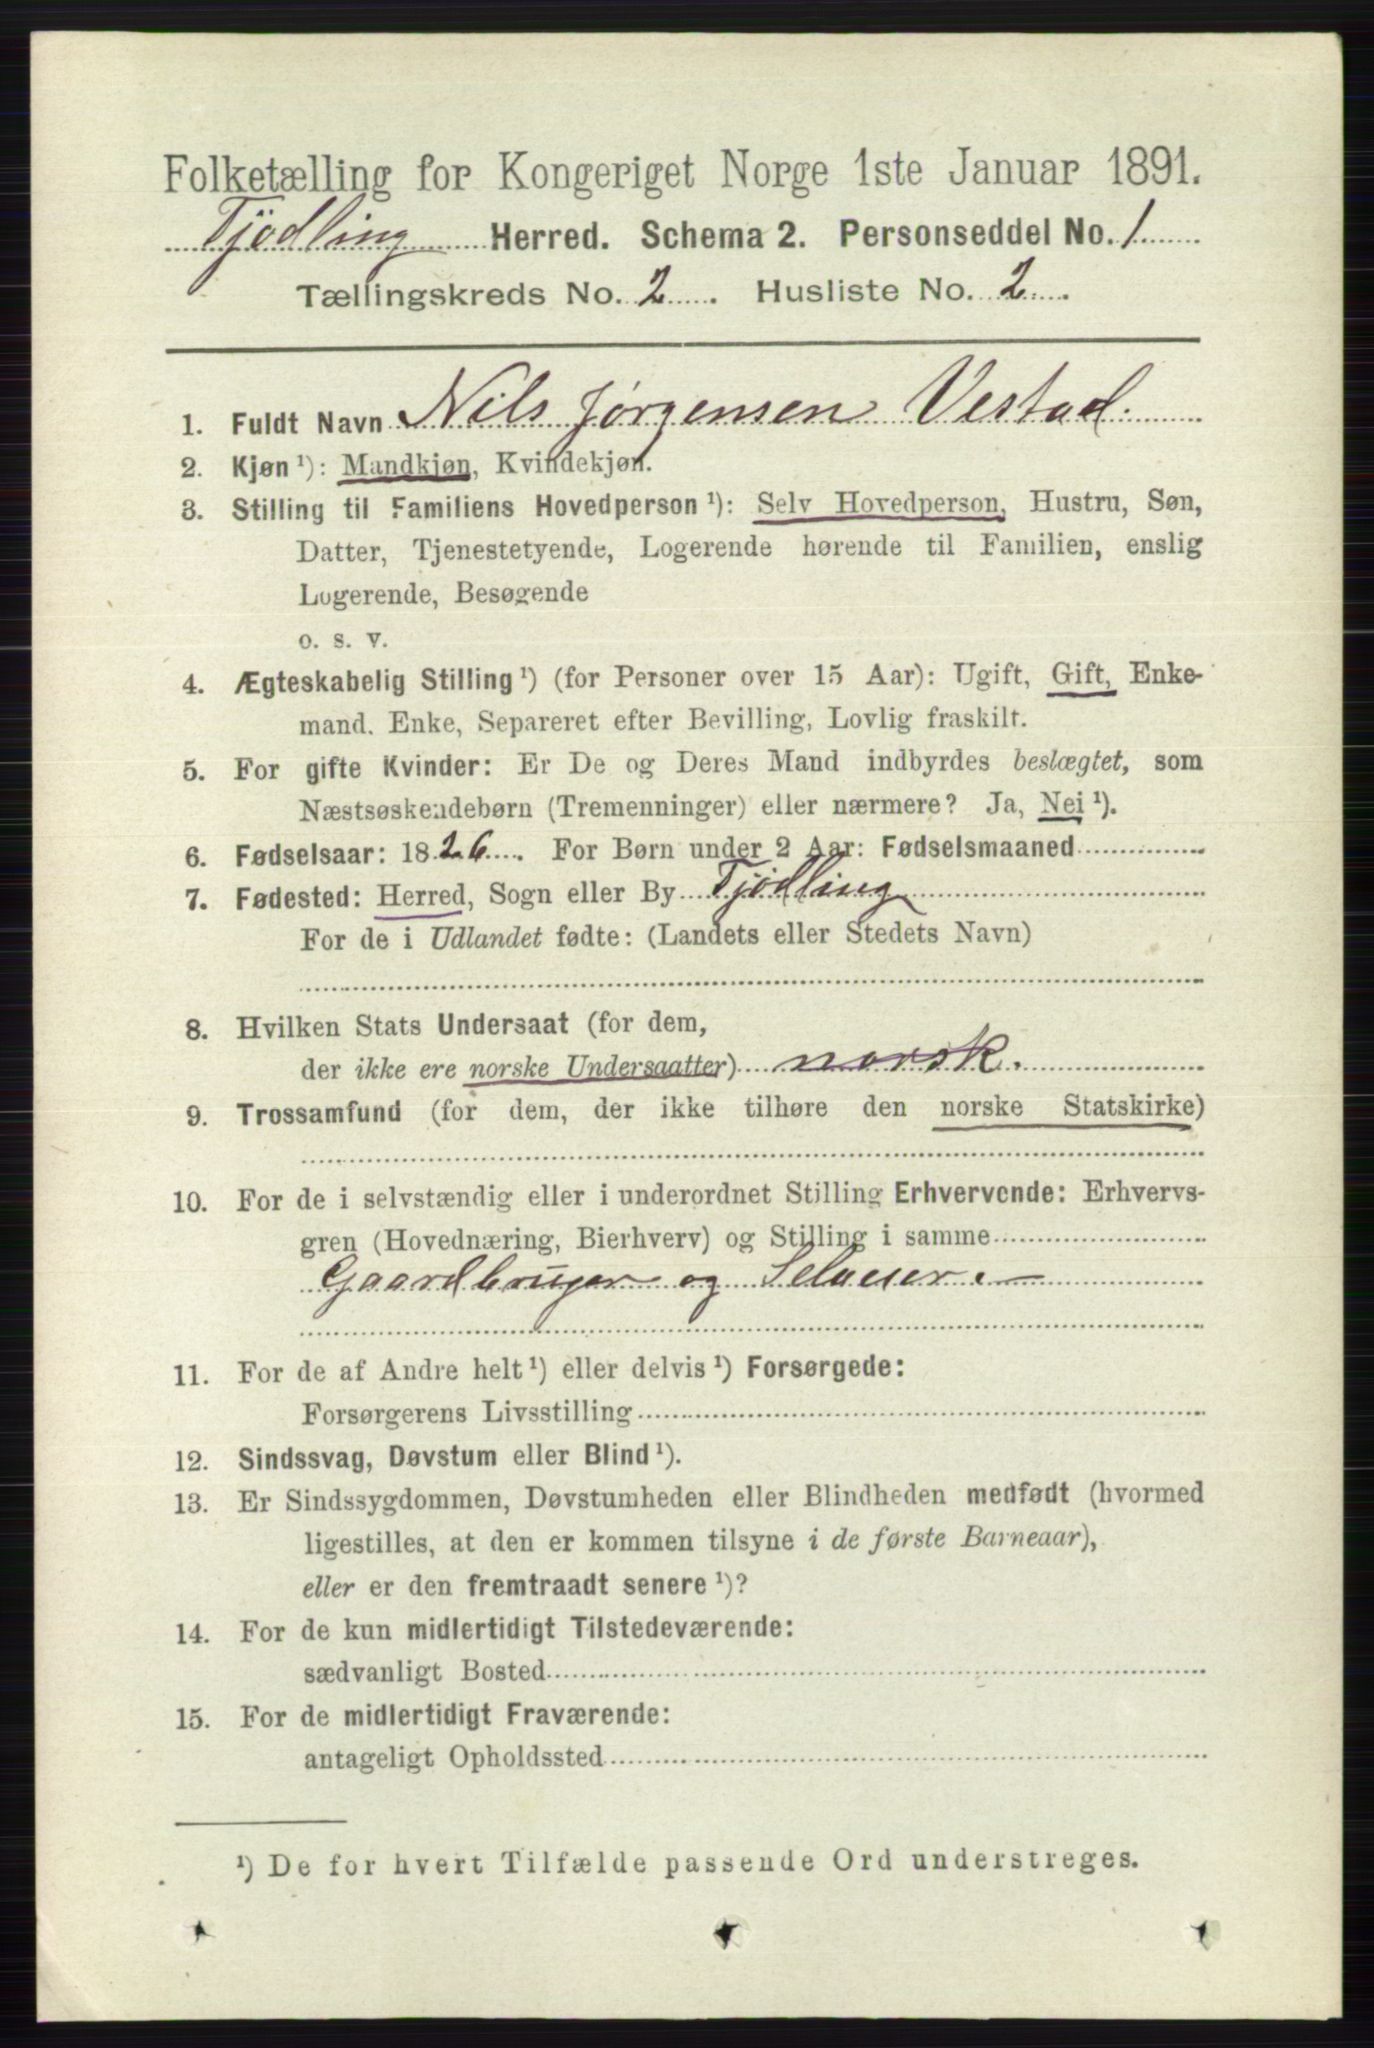 Folketælling for Kongeriget Norge 1ste Januar 1891.
Tjödling Herred. Schema 2. Personseddel No. 1
Tællingskreds No. 2. Husliste No. 2.
1. Fuldt Navn Nils Jørgensen Vestad.
2. Kjøn ¹): Mandkjøn, Kvindekjøn.
3. Stilling til Familiens Hovedperson ¹): Selv Hovedperson, Hustru, Søn,
Datter, Tjenestetyende, Logerende hørende til Familien, enslig
Logerende, Besøgende
o. s. v.
4. Ægteskabelig Stilling ¹) (for Personer over 15 Aar): Ugift, Gift, Enke-
mand, Enke, Separeret efter Bevilling, Lovlig fraskilt.
5. For gifte Kvinder: Er De og Deres Mand indbyrdes beslægtet, som
Næstsøskendebørn (Tremenninger) eller nærmere? Ja, Nei ¹).
6. Fødselsaar: 1826. For Børn under 2 Aar: Fødselsmaaned
7. Fødested: Herred, Sogn eller By Tjödling
For de i Udlandet fødte: (Landets eller Stedets Navn)
8. Hvilken Stats Undersaat (for dem,
der ikke ere norske Undersaatter) norsk.
9. Trossamfund (for dem, der ikke tilhøre den norske Statskirke)
10. For de i selvstændig eller i underordnet Stilling Erhvervende: Erhvervs-
gren (Hovednæring, Bierhverv) og Stilling i samme
Gaardbruger og Selveier.
11. For de af Andre helt ¹) eller delvis ¹) Forsørgede:
Forsørgerens Livsstilling
12. Sindssvag, Døvstum eller Blind ¹).
13. Er Sindssygdommen, Døvstumheden eller Blindheden medfødt (hvormed
ligestilles, at den er kommen tilsyne i de første Barneaar),
eller er den fremtraadt senere ¹)?
14. For de kun midlertidigt Tilstedeværende:
sædvanligt Bosted
15. For de midlertidigt Fraværende:
antageligt Opholdssted
¹) De for hvert Tilfælde passende Ord understreges.